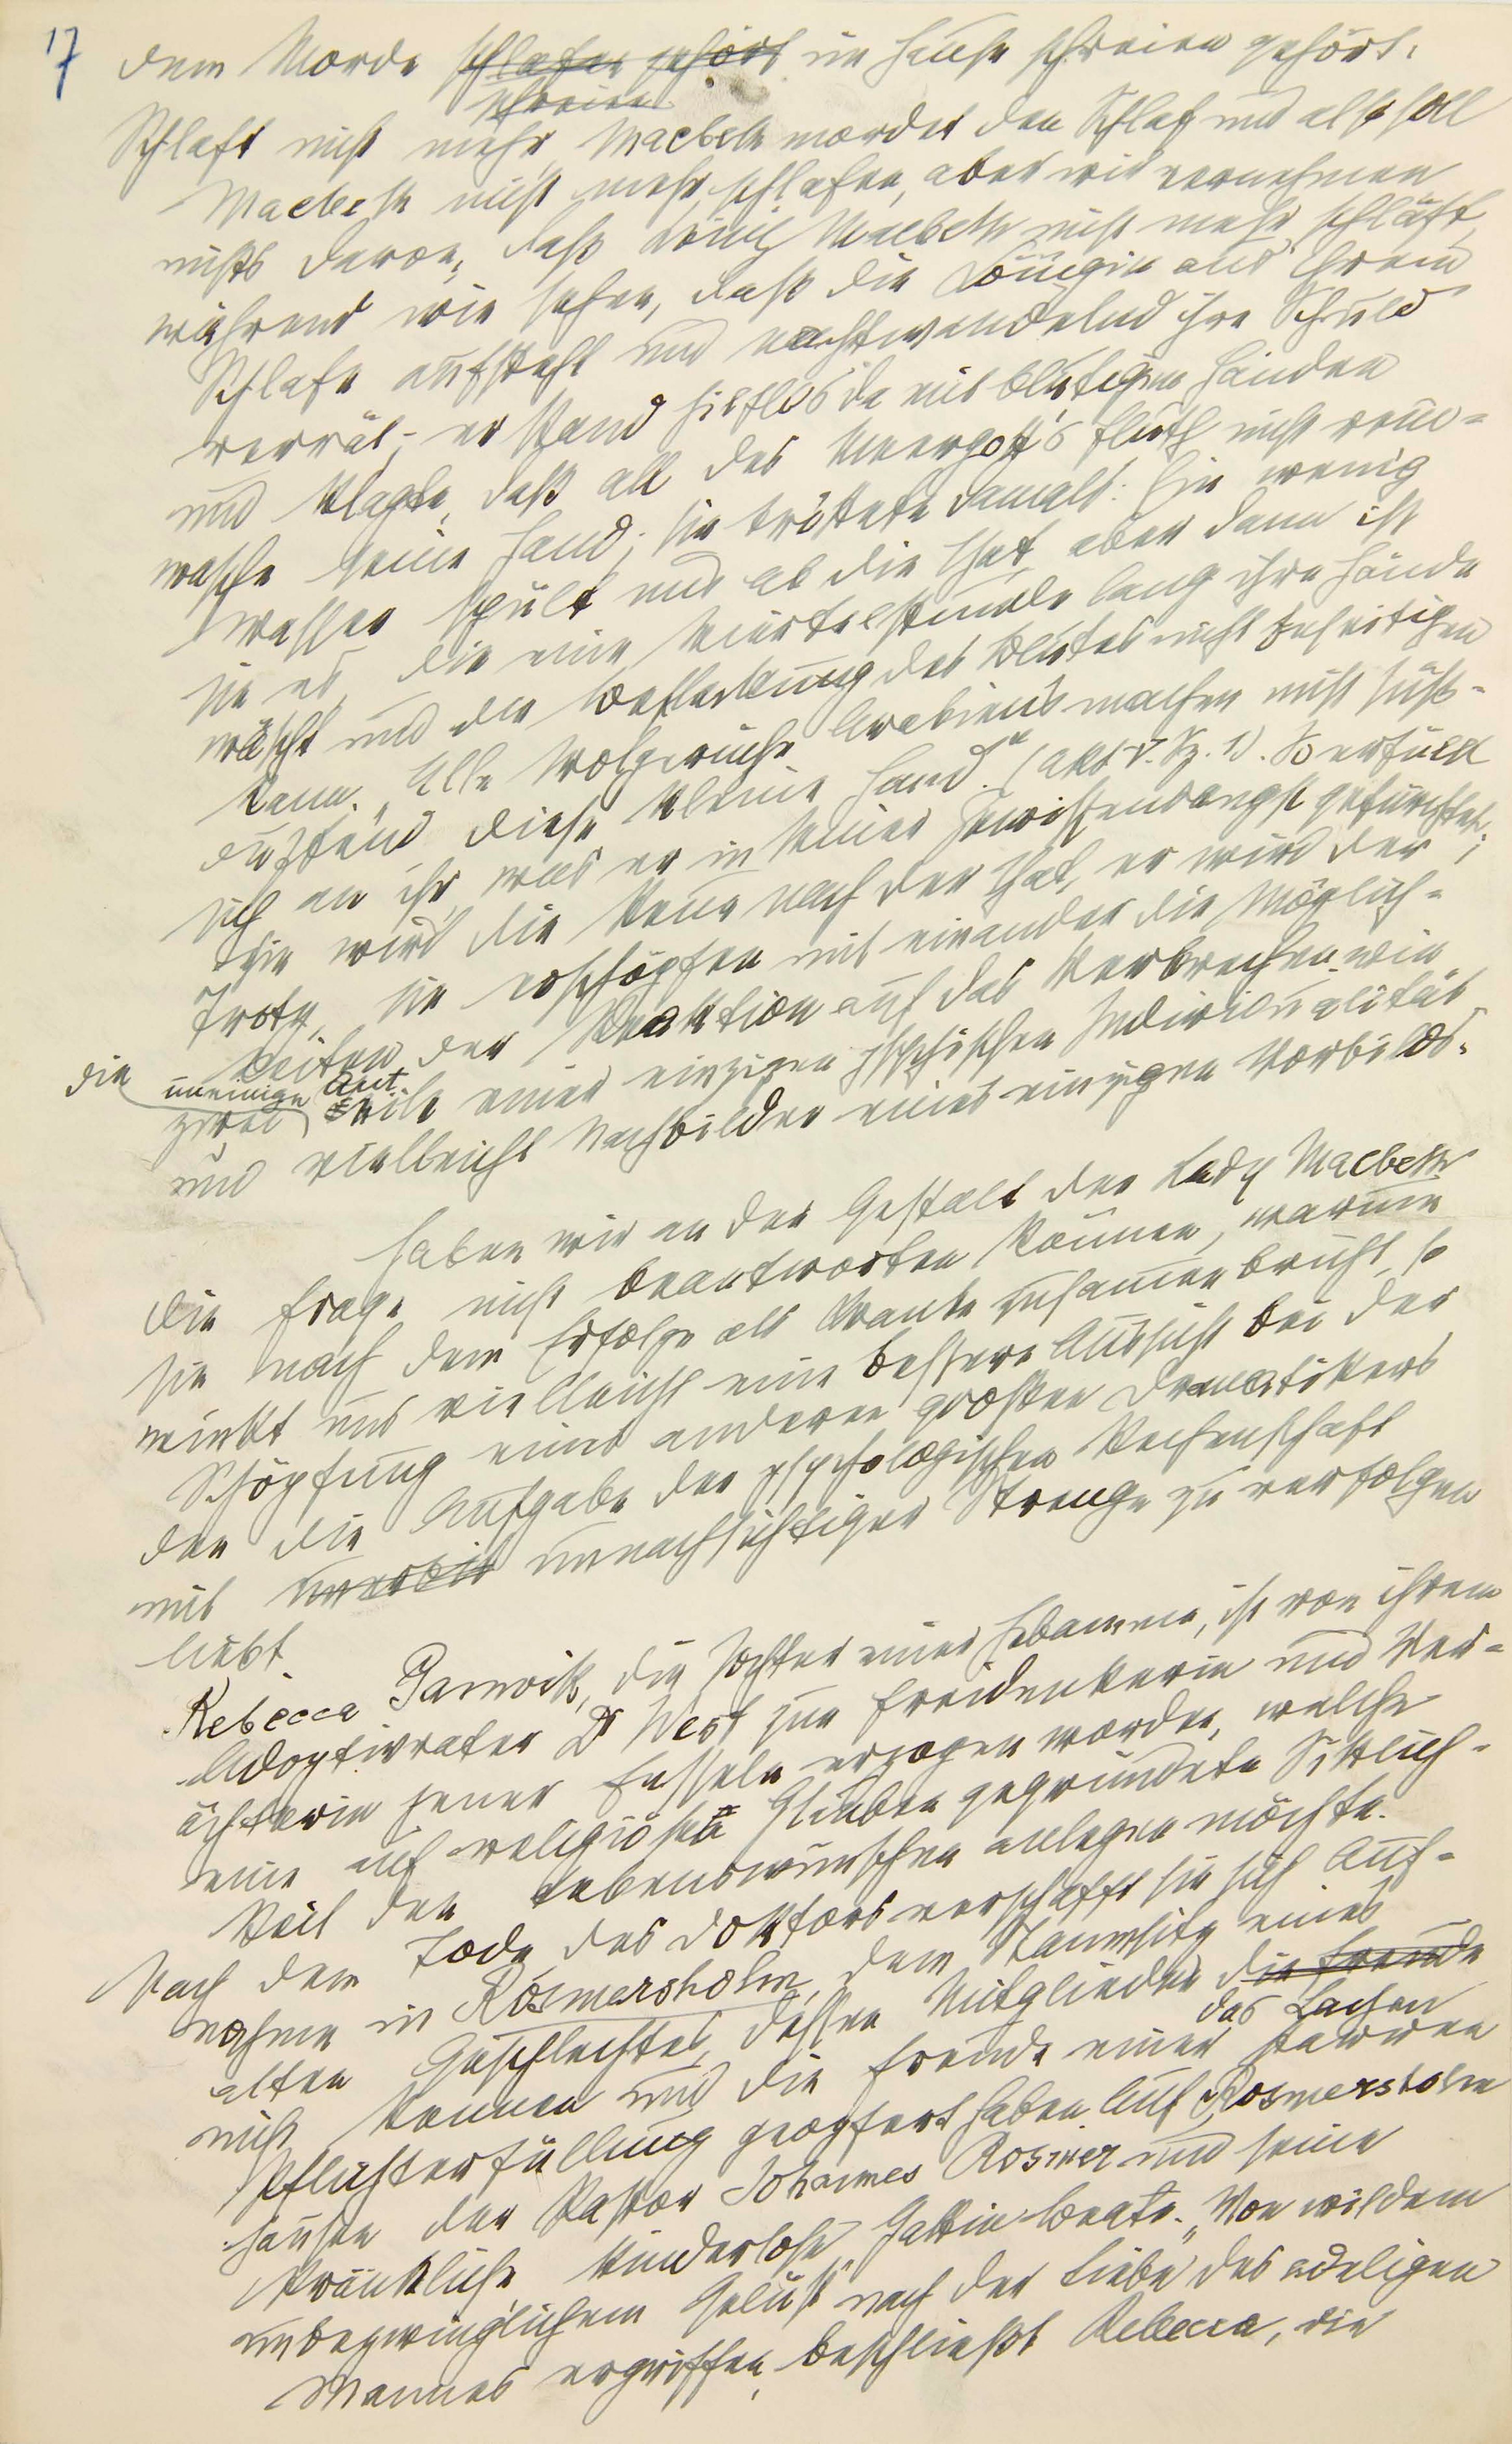 17
dem Morde schlafen gehört im Hause schreien gehört:
schreien
Schlaft nicht mehr, Macbeth mordet den Schlaf und also soll
Macbeth nicht mehr schlafen, aber wir vernehmen
nichts davon, daß König Macbeth nicht mehr schläft,
während wir sehen, daß die Königin aus ihrem
Schlafe aufsteht und nachtwandelnd ihre Schuld
verrät; er stand hilflos da mit blutigen Händen
und klagte, daß all des Meergott's Fluth nicht rein-
wasche seine Hand; sie tröstete damals: Ein wenig
Wasser spült uns ab die That, aber dann ist
sie es, die eine Viertelstunde lang ihre Hände
wäscht und die Befleckung des Blutes nicht beseitigen
kann. „Alle Wolgerüche Arabiens machen nicht süß-
duftend diese kleine Hand." (Akt V. Sz. 1). So erfüllt
sich an ihr, was er in seiner Gewissensangst gefürchtet;
sie wird die Reue nach der That, er wird der
Trotz, sie erschöpfen mit einander die Möglich-
keiten der Reaktion auf das Verbrechen wie
die
zwei uneinige Anteile einer einzigen psychischen Individualität
und vielleicht Nachbilder eines einzigen Vorbilds.
Haben wir an der Gestalt der Lady Macbeth
die Frage nicht beantworten können, warum
sie nach dem Erfolge als Kranke zusammenbricht, so
winkt uns vielleicht eine bessere Aussicht bei der
Schöpfung eines anderen großen Dramatikers
der die Aufgabe der psychologischen Rechenschaft
mit unnachsichtiger Strenge zu verfolgen
liebt.
Rebecca Gamvik, die Tochter einer Hebamme, ist von ihrem
Adoptivvater Dr West zur Freidenkerin und Ver-
ächterin jener Fesseln erzogen worden, welche
eine auf religiösen Glauben gegründete Sittlich-
keit den Lebenswünschen anlegen möchte.
Nach dem Tode des Doktors verschafft sie sich Auf-
nahme in Rosmersholm, dem Stammsitz eines
alten Geschlechtes, dessen Mitglieder die Freude
das Lachen
nicht kennen und die Freude einer starren
Pflichterfüllung geopfert haben. Auf Rosmersholm
hausen der Pastor Johannes Rosmer und seine
kränkliche kinderlose Gattin Beate. „Von wildem
unbezwinglichem Gelüst" nach der Liebe des adeligen
Mannes ergriffen, beschließt Rebecca, die